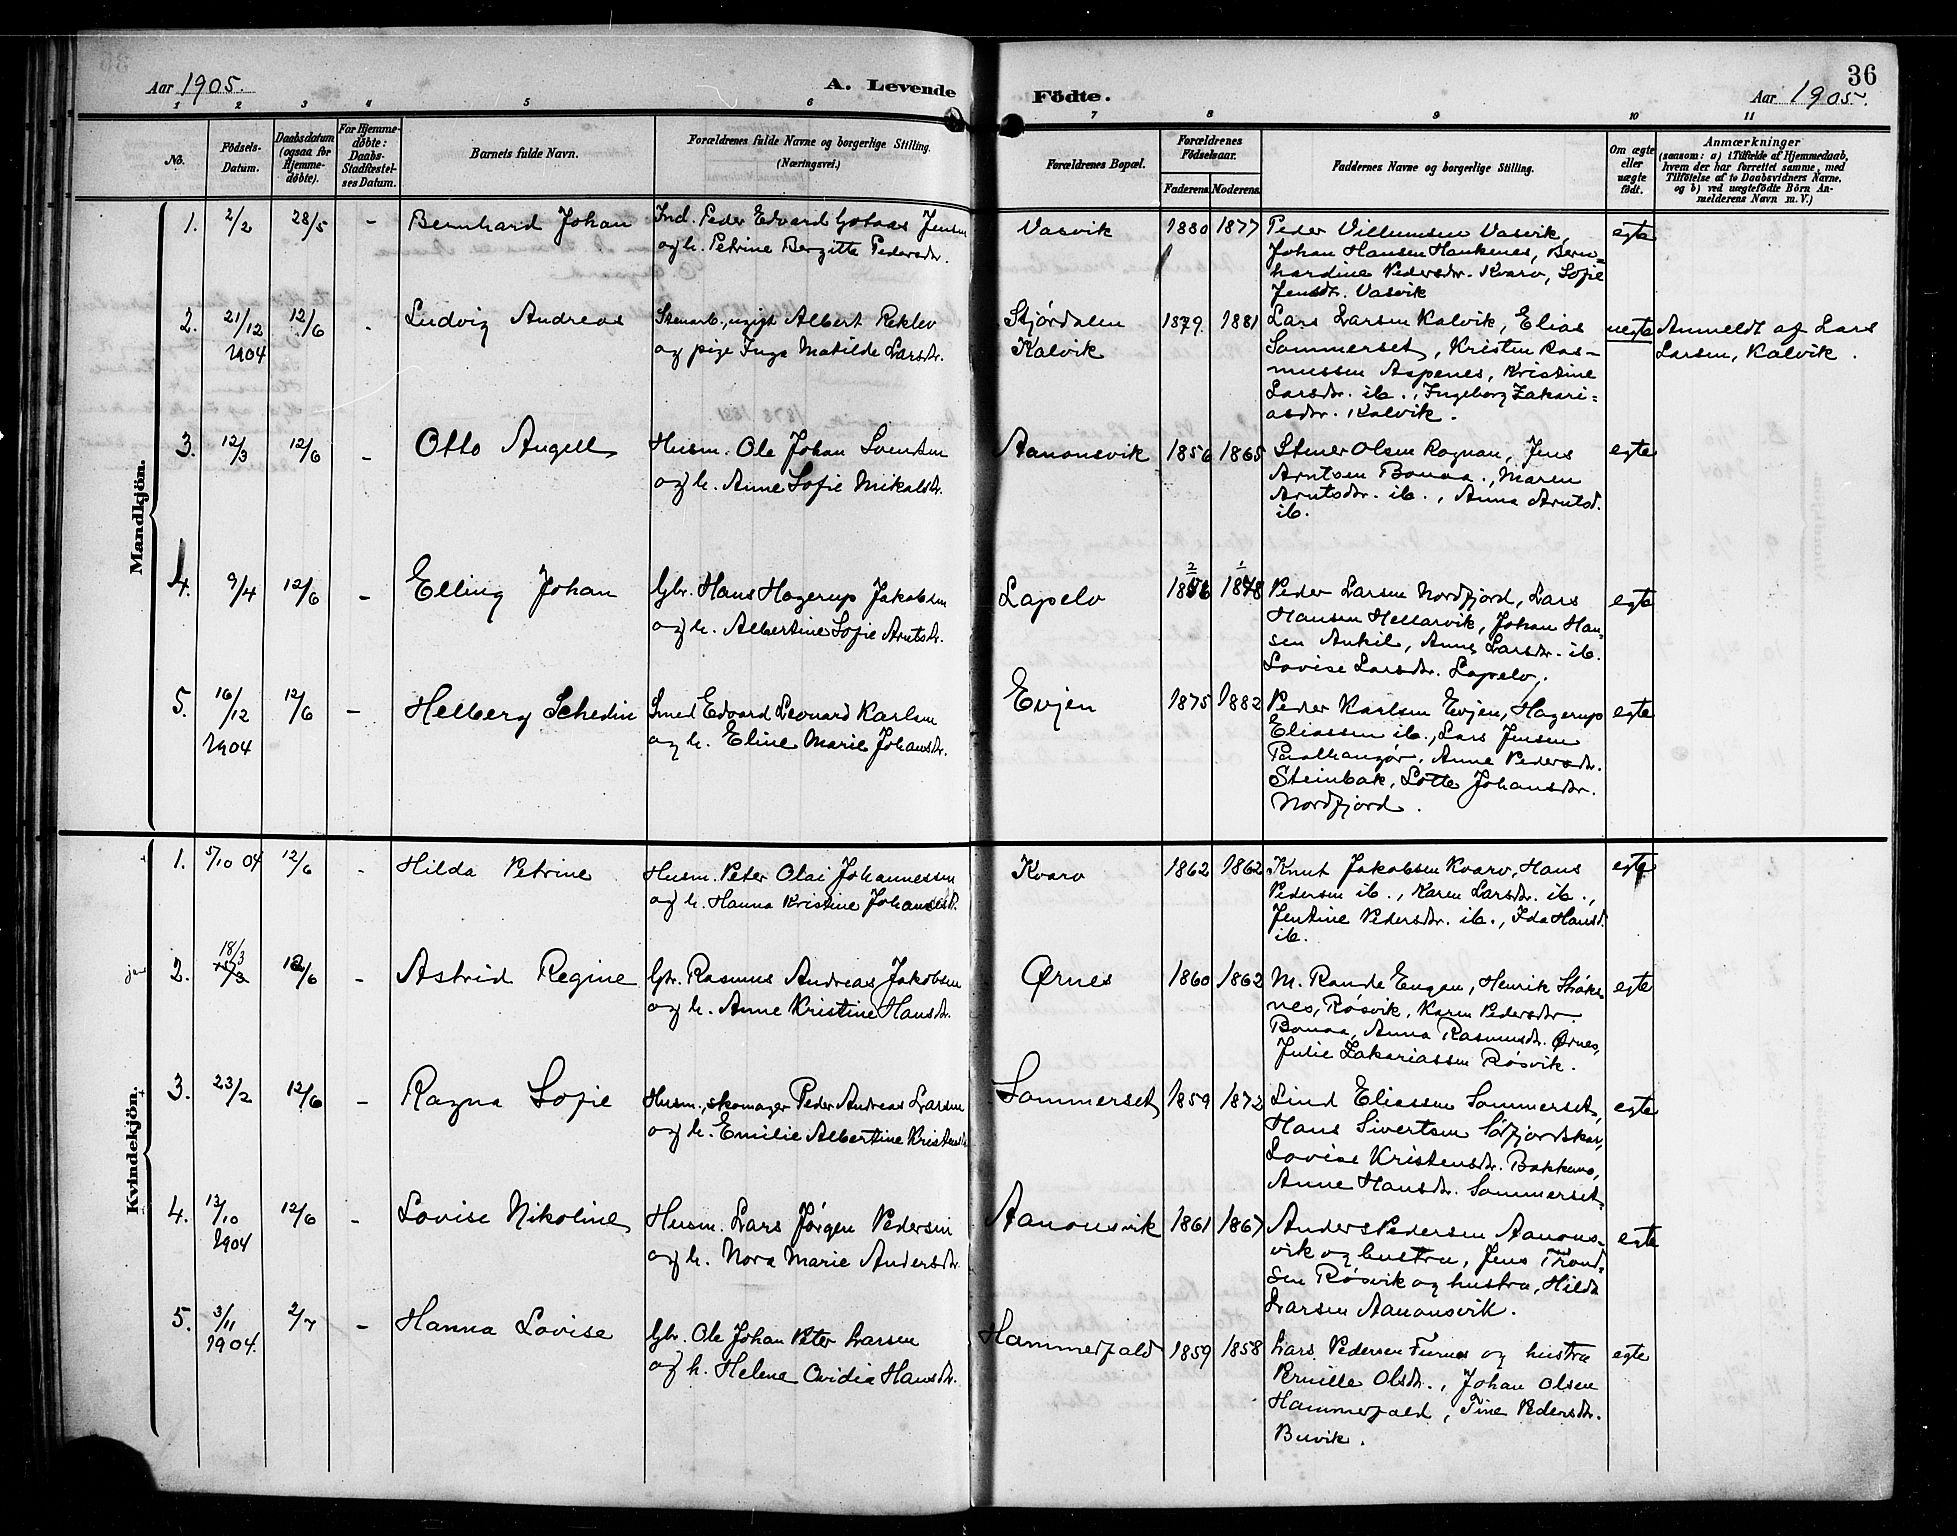 36
Aar 1905.
A. Levende Fødte.
Aar 1905.
1 2 3 4 5 6 7 8 9 10 11
No.
Fødsels-Datum.
Daabsdatum (ogsaa for Hjemme-døbte).
For Hjemme-døbte: Daabs-Stadfæstel-ses Datum.
Barnets fulde Navn.
Forældrenes fulde Navne og borgerlige Stilling.
(Næringsvei.)
Forældrenes Bopæl.
Forældrenes Fødselsaar.
Faderens. Moderens.
Faddernes Navne og borgerlige Stilling.
Om ægte eller uægte født.
Anmærkninger
(saasom: a) i Tilfælde af Hjemmedaab,
hvem der har forrettet samme, med
Tilføielse af to Daabsvidners Navne,
og b) ved uægtefødte Børn An-
melderens Navn m. V.)
Mandkjön.
1. 2/2 28/5 - Bernhard Johan
Ind. Peder Edvard Gotaas Jensen
og h. Petrine Bergitte Pedersdr.
Vasvik 1880 1877
Peder Villumsen Vasvik,
Johan Hansen Hankenes, Bern-
hardine Pedersdr. Kvarv, Sofie
Jensdr. Vasvik
egte
2. 21/12 1904 12/6 - Ludvig Andreas
Stenarb., ugift Albert Reklev
og pige Inga Matilde Larsdr.
Stjørdalen
Kalvik
1879 1881
Lars Larsen Kalvik, Elias
Sommerset, Kristen Ras-
mussen Aspenes, Kristine
Larsdr. ib., Ingeborg Zakari-
asdr. Kalvik.
uegte
Anmeldt af Lars
Larsen, Kalvik.
3. 12/3 12/6 - Otto Angell
Husm. Ole Johan Svendsen
og h. Anne Sofie Mikalsdr.
Aanonsvik 1856 1865
Stener Olsen Rognan, Jens
Arntsen Bonaa., Maren
Arntsdr. ib., Anna Arntsd.
ib.
egte
4. 9/4 12/6 - Elling Johan
Gbr. Hans Hagerup Jakobsen
og h. Albertine Sofie Arntsdr.
Lapelv
Peder Larsen Nordfjord, Lars
Hansen Hellarvik, Johan Han-
sen Ankil, Anne Larsdr. ib.
Lovise Larsdr. Lapelv.
egte
5. 16/12 1904 12/6 - Helberg Schedin
Smed Edvard Leonard Karlsen
og h. Eline Marie Johansdr.
Evjen 1875 1882
Peder Karlsen Evjen, Hagerup
Eliassen ib., Lars Jensen
Anne Pedersdr.
Steinbak, Lotte Johansdr.
Nordfjord.
egte
Kvindekjön.
1. 5/10 04 12/6 - Hilda Petrine
Husm. Peter Olai Johannessen
og h. Hanna Kristine
Kvarv 1862 1862
Knut Jakobsen Kvarv, Hans
Pedersen ib., Karen Larsdr. ib.,
Jentine Pedersdr. ib., Ida Hansd.
ib.
egte
2. 18/3 12/6 - Astrid Regine
Gbr. Rasmus Andreas Jakobsen
og h. Anne Kristine Hansdr.
Ørnes 1860 1862
M. Rande Engan, Henrik Støke-
nes, Røsvik, Karen Pedersdr.
Bonaa, Anna Rasmusdr. Ørnes,
Julie Zakariassen Røsvik.
egte
3. 23/2 12/6 - Ragna Sofie
Husm., skomager Peder Andreas Larsen
og h. Emilie Albertine Kristensdr.
Sommerset 1859 1872
Lind Eliassen Sommerset,
Hans Sivertsen Sørfjordskar,
Lovise Kristensdr. Bakkemo,
Anne Hansdr. Sommerset
egte
4. 13/10 1904 12/6 - Lovise Nikoline
Husm. Lars Jørgen Pedersen
og h. Nora Marie Andersdr.
Aanonsvik 1861 1867
Anders Pedersen Aanons-
vik og hustru, Jens Trond-
sen Røsvik og hustru, Hilda
Larsen Aanonsvik.
egte
5. 3/11 1904. 2/7 - Hanna Lovise
Gbr. Ole Johan Peter Larsen
og h. Helene Ovidia Hansdr.
Hammerfald 1859 1858
Lars Pedersen Furnes og hustru
Pernille Olsdr., Johan Olsen
Hammerfald, Tine Pedersdr.
Buvik.
egte